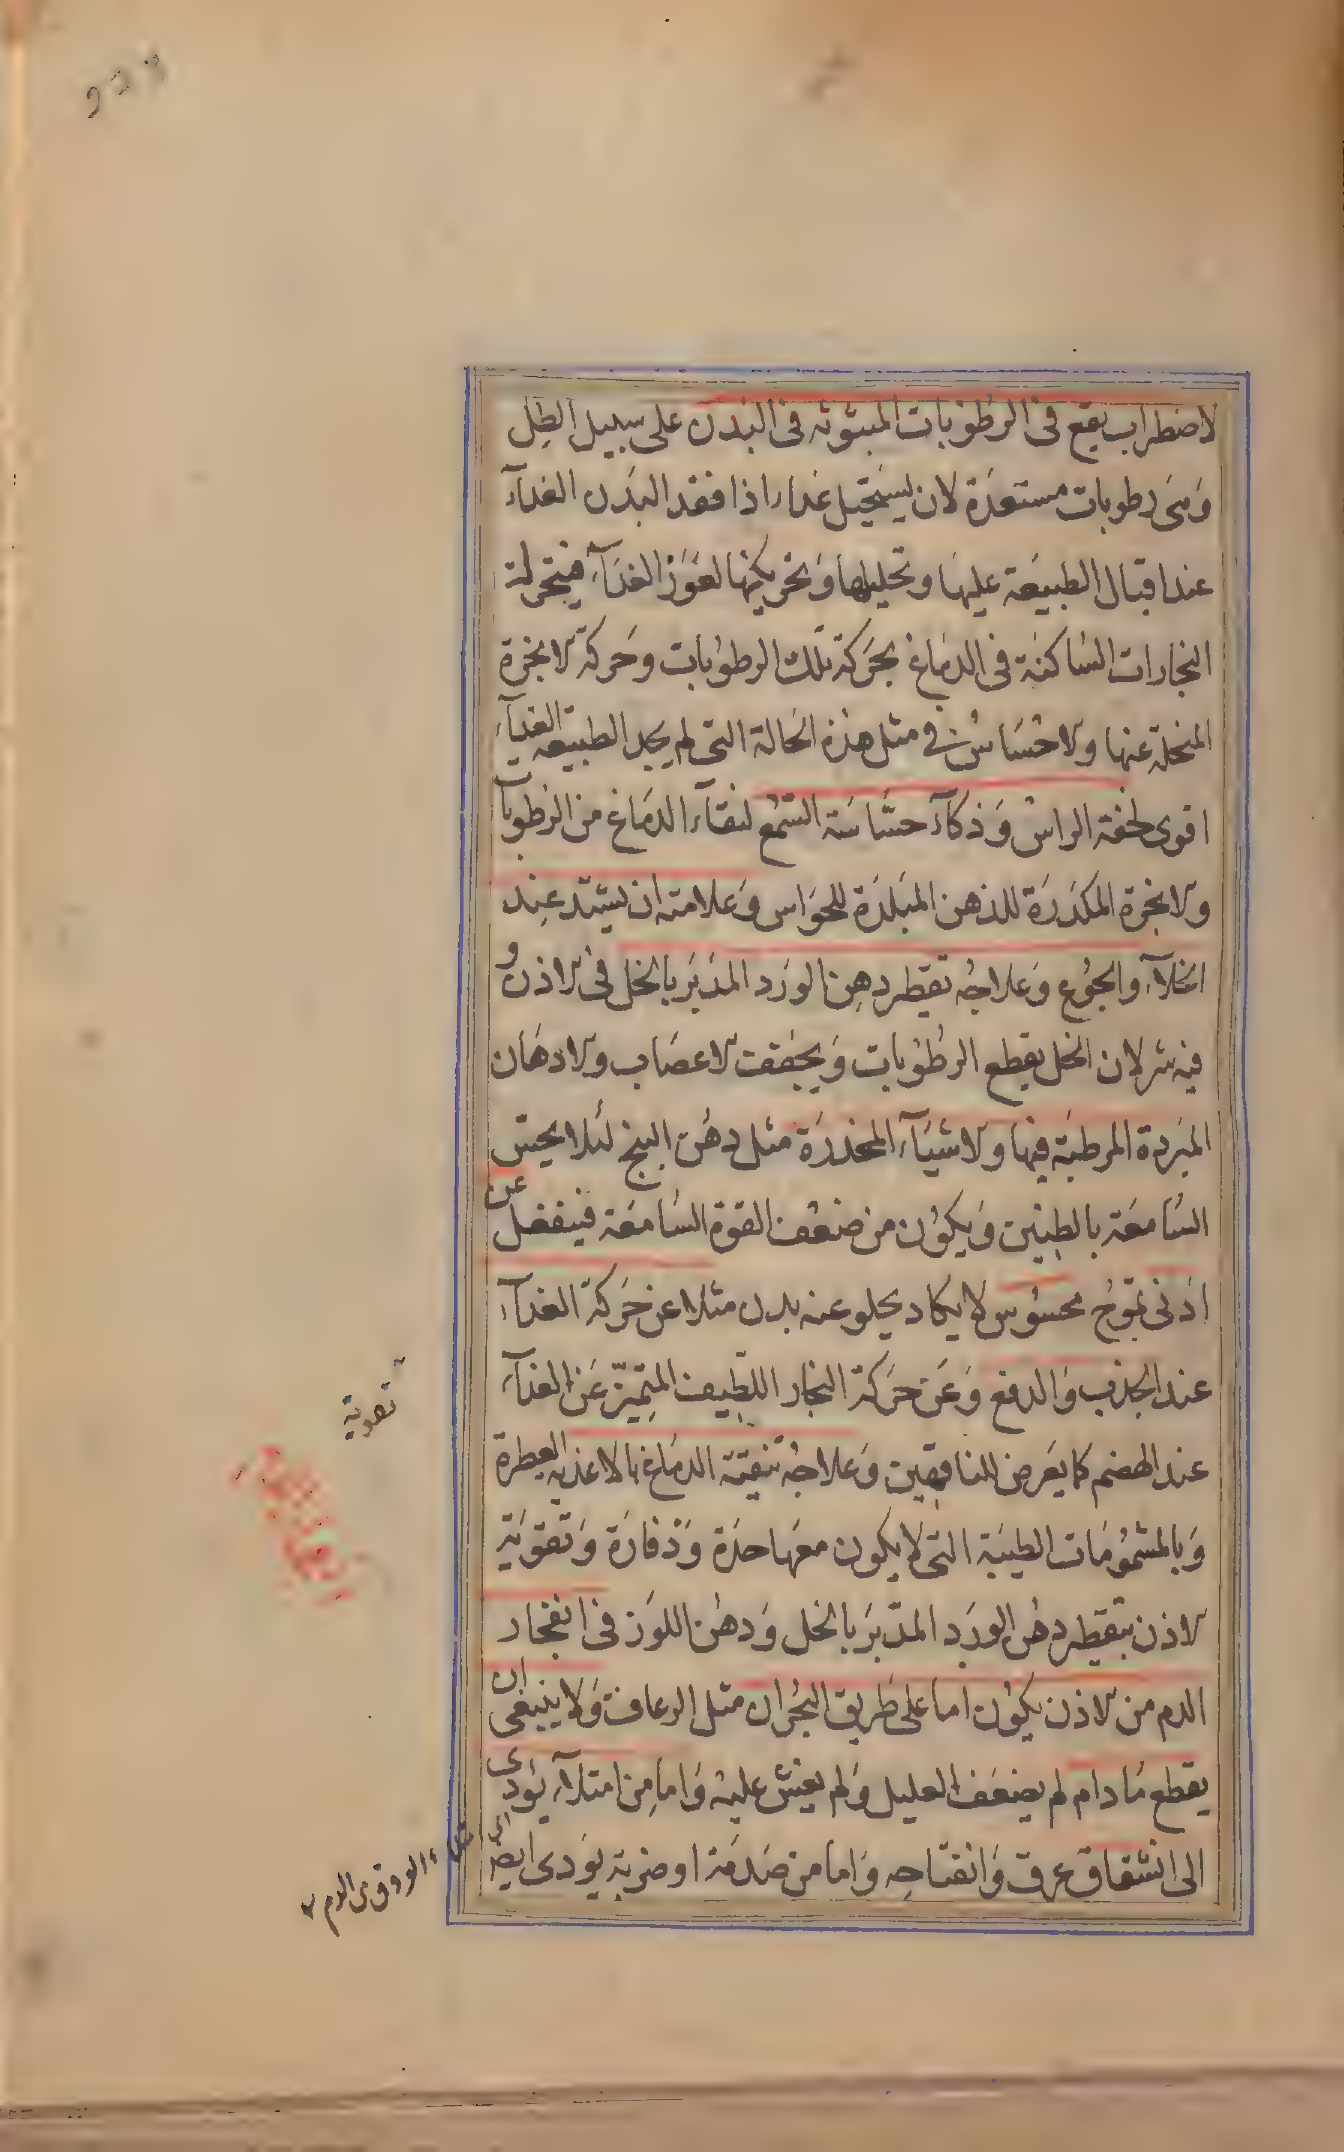 لاضطراب يقع فى الرطوبات المبثوثه فى البدن على سبيل الطل
وهى رطوبات مستعدة لان يستحيل غذاء اذا فقد البدن الغذآء
عند اقبال الطبيعة عليها وتحليلها وتحريكها لعوز الغذآء فيتحرك
البخارات الساكنة فى الدماغ بحركة تلك الرطوبات وحركة الابخرة
المنحلة عنها والاحساس فى مثل هذه الحالة التى لم يجد الطبيعة الغذآء
اقوى لخفة الراس وذكآء حساسة السمع لنقآء الدماغ من الرطوبآ
والابخرة المكدرة للذهن المبلدة للحواس وعلامته ان يشتد عند
الخلآء والجوع وعلاجه تقطير دهن الورد المدبر بالخل فى الاذن و
فيه شر لان الخل يقطع الرطوبات ويجفف الاعصاب والادهان
المبردة المرطبة فيها والاشيآء المخدرة مثل دهن البنج لئلا يحس
السامعة بالطنين ويكون من ضعف القوة السامعة فينفعل عن
ادنى تموج محسوس لا يكاد يخلو عنه بدن مثلا عن حركة الغذآء
عند الجذب والدفع وعن حركة البخار اللطيف المتميز عن الغذآء
عند الهضم كما يعرض للناقهين وعلاجه تنقية الدماغ بالاغذيه العطرة
وبالمشمومات الطيبة التى لا يكون معها حدة وذفارة وتقوية
الاذن بتقطير دهن الورد المدبر بالخل ودهن اللوز فى انفجار
الدم من الاذن يكون اما على طريق البحران مثل الرعاف ولا ينبغى ان
يقطع ما دام لم يضعف العليل ولم يغش عليه واما من امتلآء يؤدى
الى انشقاق عرق وانفتاحه واما من صدمة او ضربة يؤدى ايضا
تقوية